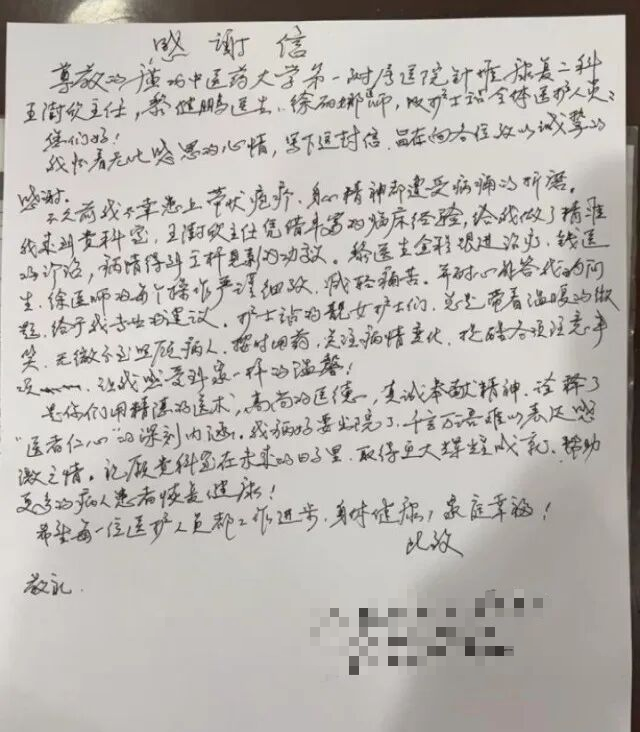 感谢信
尊敬的广州中医药大学第一附属医院针推康复二科
王澍欣主任,黎健鹏医生、徐丽娜师,及护士站全体医护人员:
您们好!
我怀着无比感恩的心情,写下这封信,旨在向各位致以诚挚的
感谢。
不久前我不幸患上带状疱疹,身心精神都遭受病痛的折磨。
我来到贵科室,王澍欣主任凭借丰富的临床经验,给我做了精准
的诊治,病情得到立杆见影的功效。黎医生全程跟进治疗,钱医
生、徐医师的每个操作严谨细致,减轻痛苦。耐心解答我的问
题,给于我专业的建议。护士站的靓女护士们,总是带着温暖的微
笑,无微不至照顾病人。按时用药,关注病情变化,提醒各项注意事
项 让我感受到家一样的温馨!
是你们用精湛的医术,高尚的医德,真诚奉献精神,诠释了
“医者仁心”的深刻内涵。我病好要出院了,千言万语难以表达感
激之情。祝愿贵科室在未来的日子里,取得更大辉煌成就,帮助
更多的病人患者恢复健康!
希望每一位医护人员都工作进步,身体健康,家庭幸福!
此致
敬礼.